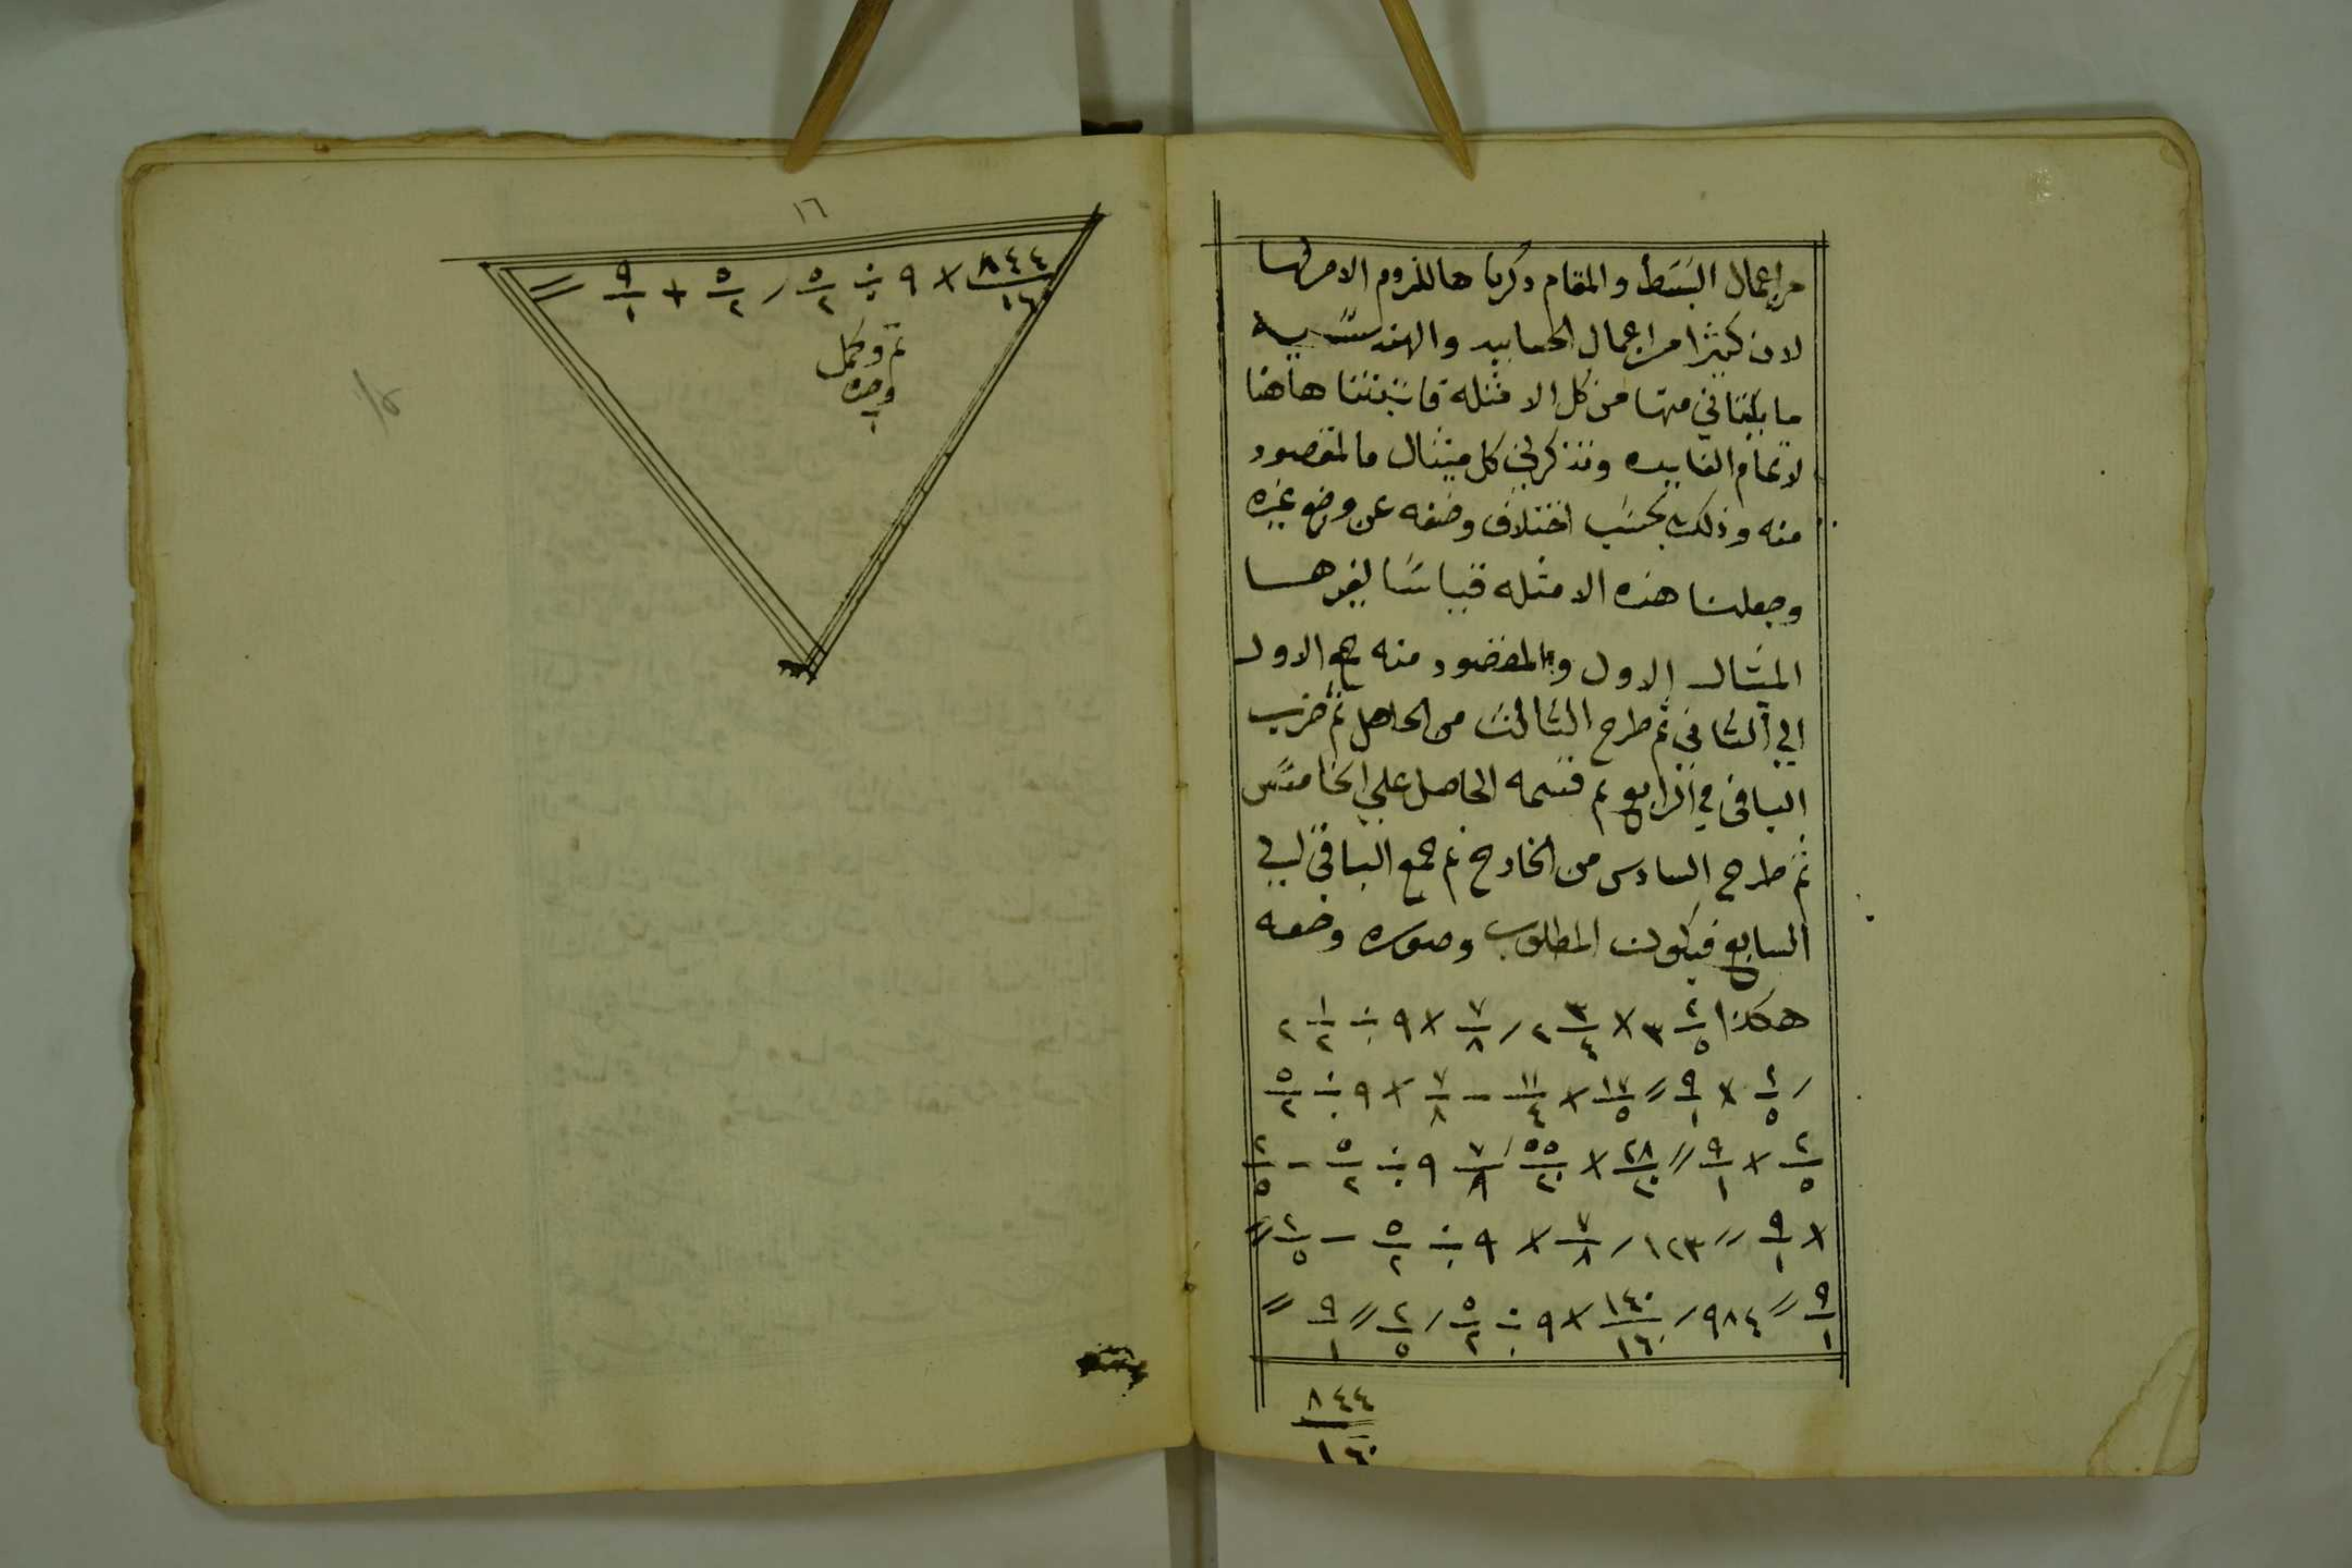 من اعمال البسط والمقام ذكرناها للزوم الامر لها
لان كثيرا من اعمال الحسابيه والهندسيه
ما يلتاني منها من كل الامثله فاثبتنا هاهنا
لاتمام الفايده ونذكر في كل مثال مالمقصود
منه وذلك بحسب اختلاف وضعه عن وضع غيره
وجعلنا هذه الامثله قياسًا لغيرها
المثال الاول والمقصود منه جمع الاول
الي الثاني ثم طرح الثالث من الحاصل ثم ضرب
الباقي في الرابع ثم قسمه الحاصل علي الخامس
ثم طرح السادس من الخارج ثم جمع الباقي الي
السابع فيكون المطلوب وصوره وضعه
هكذا ٢/٥ ٣ × ٣/٤ ٢ / ٧/٨ × ٩ ÷ ١/٢ ٢
/ ٢/٥ × ٩/١ // ١٧/٥ × ١١/٤ − ٧/٨ × ٩ ÷ ٥/٢
٢/٥ × ٩/١ // ٢٨/٢٠ × ٥٥/٢٠ / ٧/٨ ٩ ÷ ٥/٢ − ٢/٥
× ٩/١ // ١٢٣ / ٧/٨ × ٩ ÷ ٥/٢ − ٢/٥ //
٩/١ // ٩٨٤ / ١٤٠/١٦٠ × ٩ ÷ ٥/٢ / ٢/٥ // ٩/١ //
٨٤٤/١٦٠
١٦
٨٤٤/١٦٠ × ٩ ÷ ٥/٢ / ٥/٢ + ٩/١ //
تم وكمل